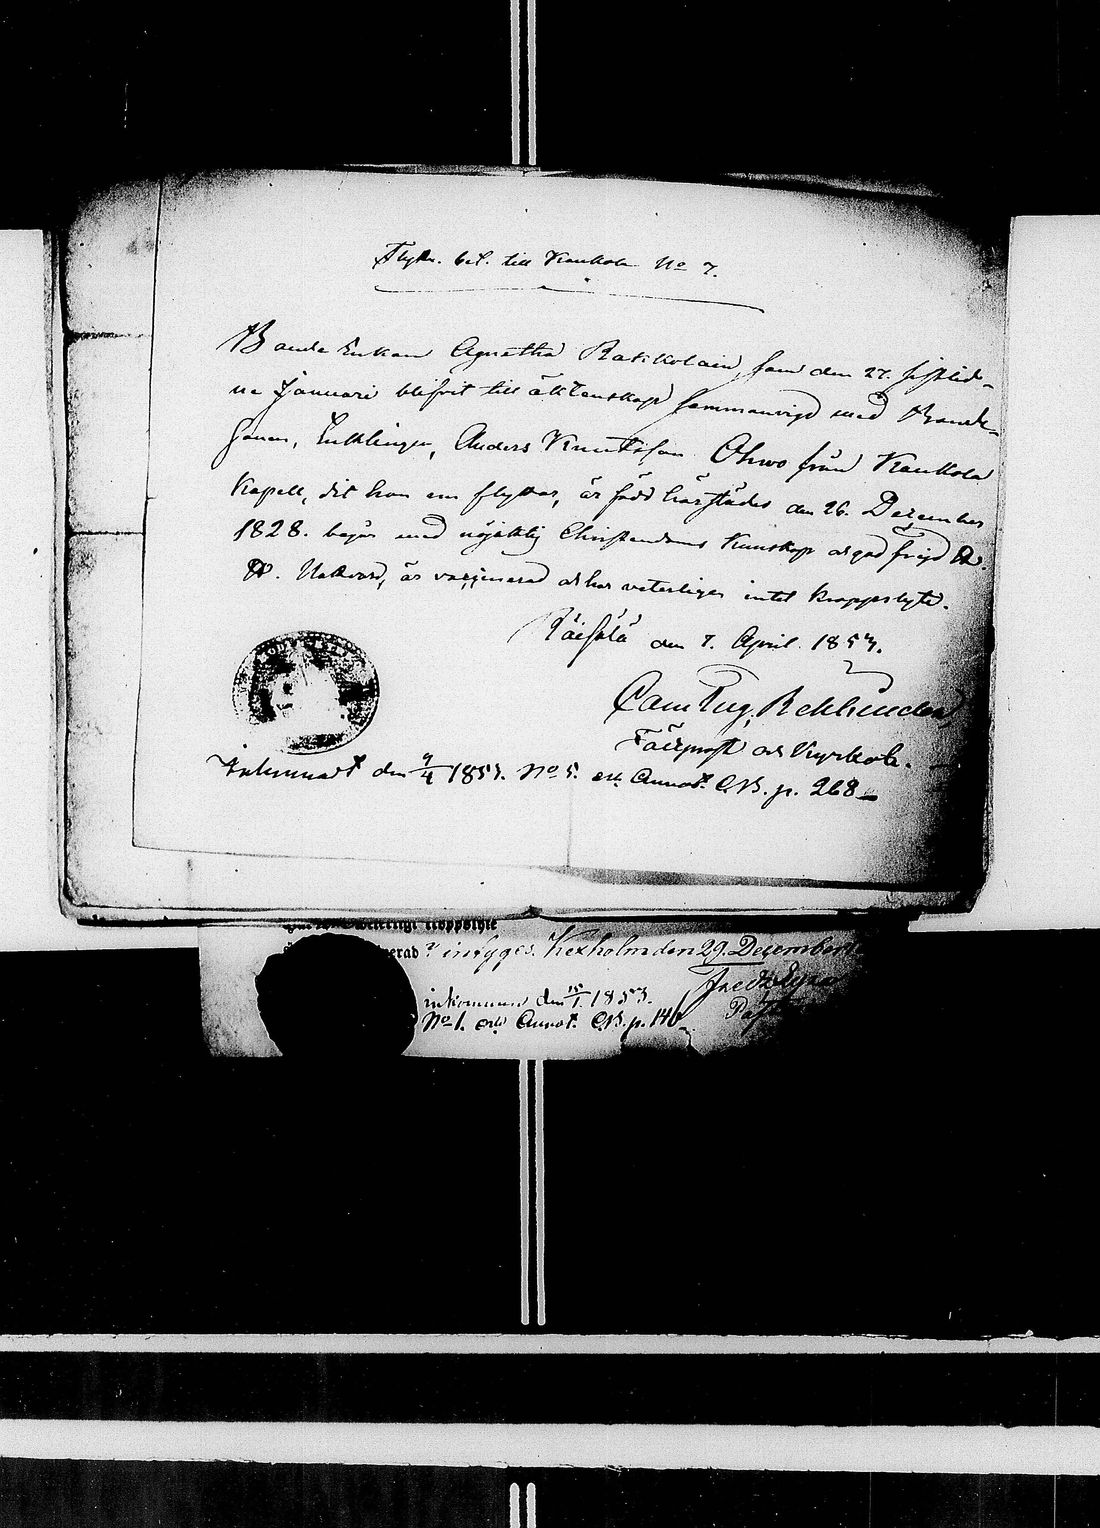 Flyttn. bet. till Kaukola No 7.
Bonde Enkan Agnetha Rasikolain, som den 27. sistlid-
ne Januari blifvit till äktenskap sammanvigd med Bonde-
Sonen, Enklingen, Anders Knutsson Ohvo från Kaukola
Kapell, dit hon nu flyttar, är född härstädes den 26. December
1828. beger med nöjaktig Christendoms Kunskap och god frejd H.
H. Nattvard, är vaccinerad och har veterligen intet kroppslyte.
Räisälä den 7. April 1853.
Aug.
och Kyrkoh.
Inkommit den 9/4 1853. No 5. och Annot. C.B. p. 268
veterligt kroppslyte
erad? intyges. Kexholm den 29. December
inkommen den 15/1. 1853.
No 1. och Annot. C.B. p. 146